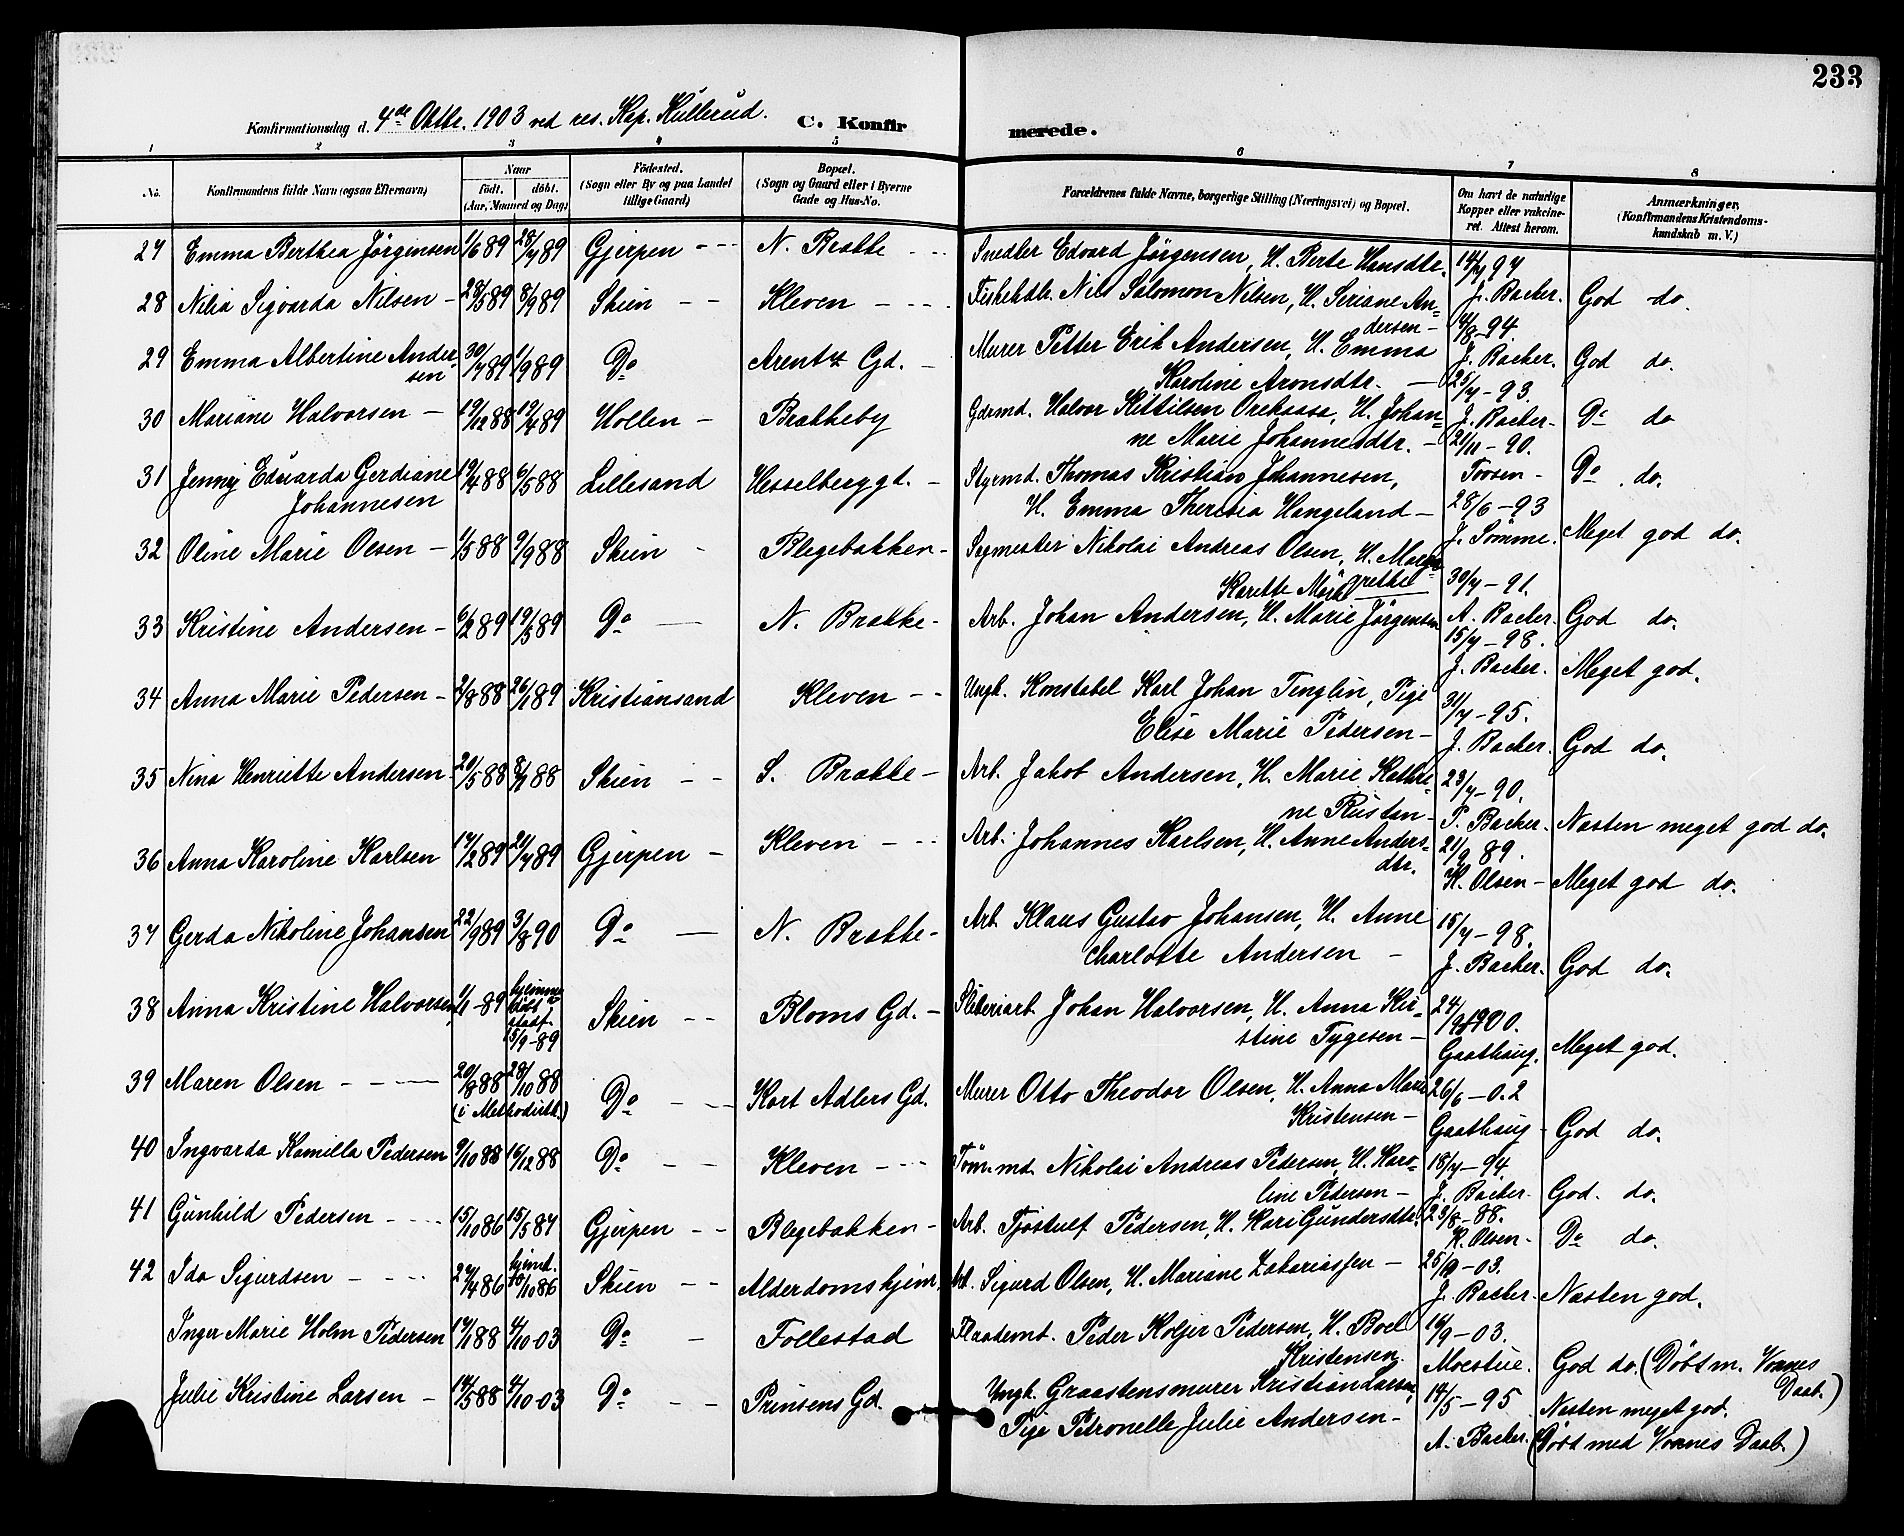 233
Konfirmationsdag d. 4de Oktbr. 1903 ved res. Kap. Kullerud.
C. Konfirmerede.
1 2 3 4 5 6 7 8
No.
Konfirmandens fulde Navn (ogsaa Efternavn)
Naar
födt. döbt.
(Aar, Maaned og Dag)
Födested.
(Sogn eller By og paa Landet
tillige Gaard)
Bopæl.
(Sogn og Gaard eller i Byerne
Gade og Hus-No.
Forældrenes fulde Navne, borgerlige Stilling (Næringsvei) og Bopæl.
Om havt de naturlige
Kopper eller vakcine-
ret. Attest herom.
Anmærkninger,
(Konfirmandens Kristendoms-
kundskab m. V.)
27 Emma Berthea Jörginsen 1/6 89 28/7 89 Gjerpen - - - N. Brekke - - - Snedker Edvard Jörgensen, H. Berte Hansdtr. 14/7 97
J. Backer.
28 Nilia Sigvarda Nilsen - 28/5 89 8/9 89 Skien - - Kleven - - - Fiskehdlr. Nils Salomon Nilsen, H. Seriane An-
dersen - 14/8 - 94. J. Backer. God do.
29 Emma Albertine Ander-
sen 30/7 89 1/9 89 Do Arentz Gd. - Murer Petter Erik Andersen, H. Emma
Karoline Aronsdtr. - 25/7 - 93. J. Backer. God do.
30 Mariane Halvorsen - 19/12 88 19/4 89 Hollen - Brekkeby Gdrmd. Halvor Kittilsen Orekaasa, H. Johan-
ne Marie Johannesdtr. - 21/11 - 90. Do do
31 Jenny Eduarda Gerdiane
Johannesen 19/4 88 6/5 88 Lillesand Hesselberggd. - Styrmd. Thomas Kristian Johannesen, Torsen - Do do.
H. Emma Theresia Hangeland - 28/6 - 93
32 Oline Marie Olsen - 1/5 88 9/9 88 Skien - Blegebakken - Sagmester Nikolai Andreas Olsen, H. Maren J. Sömme. Meget god do.
30/7 - 91.
33 Kristine Andersen - 6/2 89 19/5 89 Do - N. Brekke - Arb. Johan Andersen, H. Marie Jörgensen A. Backer. God do.
15/7 - 98. J. Backer. Meget god.
34 Anna Marie Pedersen - 2/8 88 26/1 89 Kristiansand Kleven - - Ungk. Konstabel Karl Johan Tenglin, Pige 31/7 - 95.
Elise Marie Pedersen - J. Backer. God do.
35 Nina Henriette Andersen - 20/5 88 8/7 88 Skien - - S. Brekke - Arb. Jakob Andersen, H. Marie Kathri-
ne Rustan - 23/7 - 90. P. Backer. Næsten meget god do.
36 Anna Karoline Karlsen 17/2 89 21/7 89 Gjerpen - Kleven - - - Arb. Johannes Karlsen, H. Anne Anders-
dtr. 21/9 89. K. Olsen - Meget god do.
37 Gerda Nikoline Johansen 22/9 89 3/8 90 Do - N. Brekke - Arb. Klaus Gustav Johansen, H. Anne 15/7 - 98.
Charlotte Andersen - J. Backer. God do.
38 Anna Kristine Halvorsen 1/1 - 89 hjemme
döbt
stadf.
15/9 - 89 Skien - - Bloms Gd. - Sliberiarb. Johan Halvorsen, H. Anna Kri-
stine Tygesen - 24/9 1900. Gaathaug. Meget god.
39 Maren Olsen - - - 20/8 88 28/10 88
(i Methodistk.) Do - - Kort Adlers Gd. Murer Otto Theodor Olsen, H. Anna Marie 26/6 - 02
Kristensen - Gaathaug - God do.
40 Ingvarda Kamilla Pedersen 9/10 88 16/12 88 Do - - Kleven - - - Tömmd. Nikolai Andreas Pedersen, H. Karo- 18/7 - 94
line Pedersen - J. Backer. God do.
41 Gunhild Pedersen - - - 15/10 86 15/5 87 Gjerpen - - Blegebakken - Arb. Tjöstulf Pedersen, H. Kari Gundersdtr. 23/8 - 88.
K. Olsen - Do do.
42 Ida Sigurdsen - - - 27/4 86 hjemd.
10/10 86 Skien - - Alderdomshjem. Arb. Sigurd Olsen, H. Mariane Zakariassen - 25/9 - 03.
J. Backer. Næsten god.
Inger Marie Holm Pedersen 17/1 88 4/10 - 03 Do - Follestad Flaademt. Peder Holger Pedersen, H. Boel 16/9 - 03.
Kristensen. Moestue. God do. (Döbt m. Voxnes
Daab.)
Julie Kristine Larsen - 14/5 88 4/10 - 03 Do - - Prinsens Gd. Ungk. Graastensmurer Kristian Larsen, 14/5 - 95 Næsten meget god.
Pige Petronelle Julie Andersen - A. Backer. (Döbt med Voxnes Daab.)